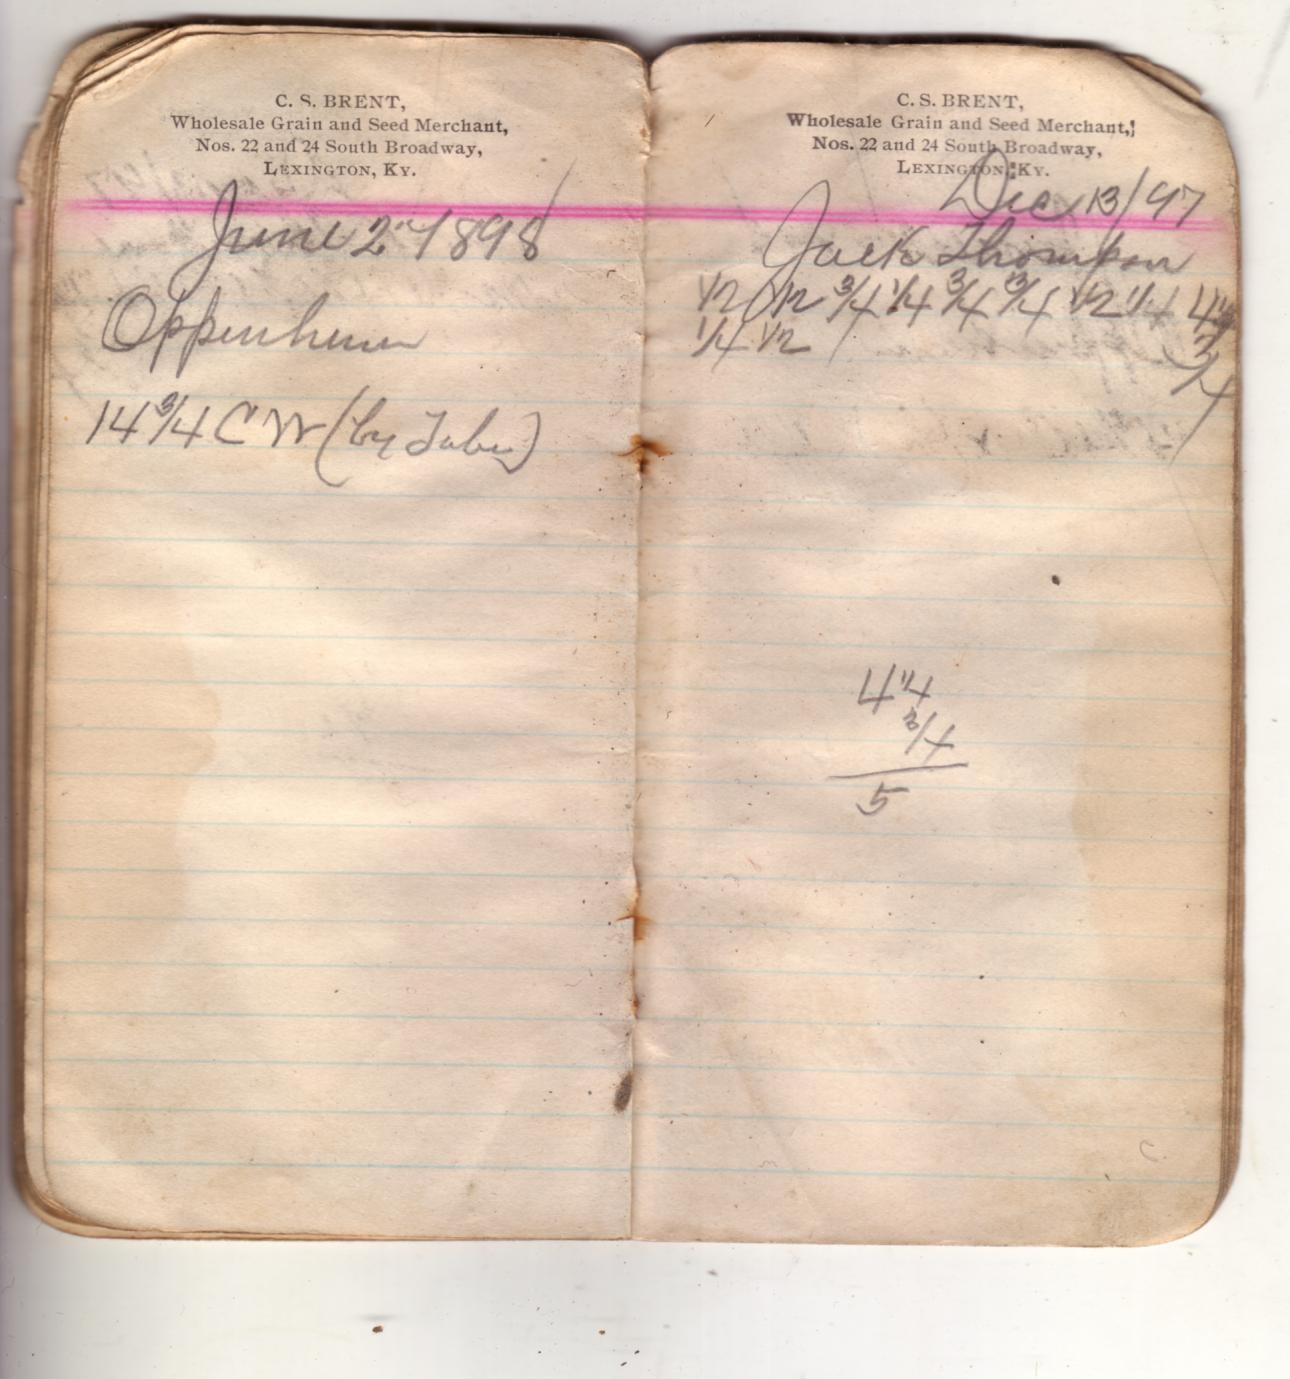 C. S. BRENT,
Wholesale Grain and Seed Merchant,
Nos. 22 and 24 South Broadway,
LEXINGTON, KY.
June 27 1898
Oppenheim
14 3/4 C W (by Tabu)
C. S. BRENT,
Wholesale Grain and Seed Merchant,
Nos. 22 and 24 South Broadway,
LEXINGTON, KY.
Dec 13/97
Jack Thompson
1/2 1/2 3/4 1/4 3/4 3/4 1/2 1/4 4 1/4
1/4 1/2 3/4
4 1/4
3/4
5